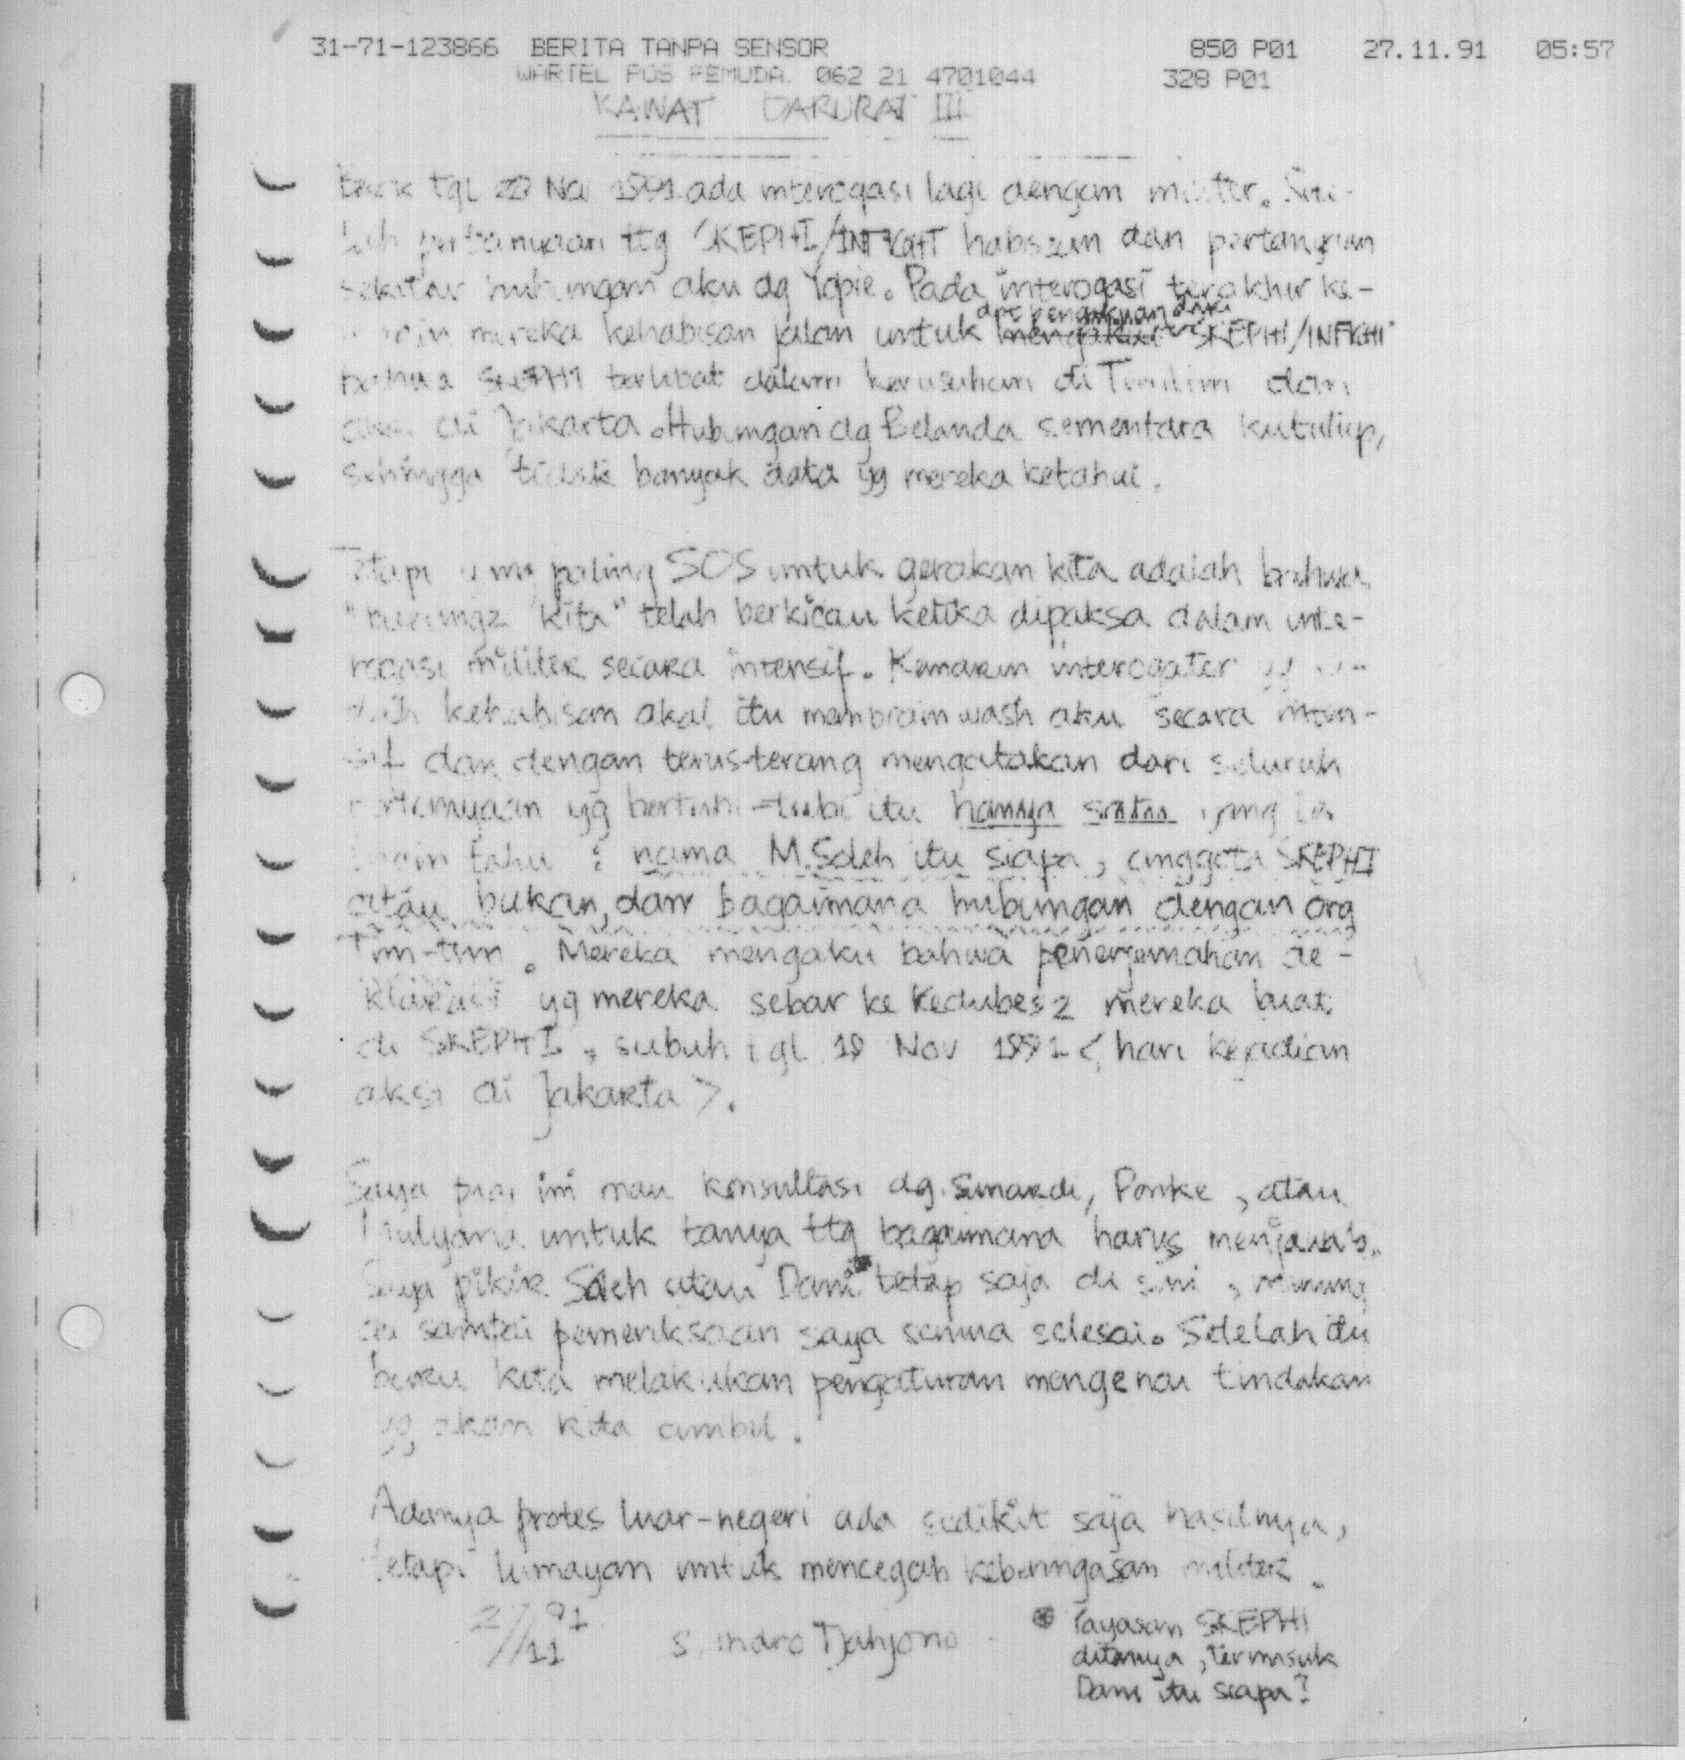 31-71-123866 BERITA TANPA SENSOR 850 P01 27.11.91 05:57
WARTEL POS PEMUDA. 062 21 4701044 328 P01
KAWAT DARURAT III
tgl ada interogasi lagi dengan
ttg SKEPHI/INFIGHT dan
sekitar hubungan aku dg Yopie. Pada interogasi terakhir ke-
dpt pengakuan dari
mereka kehabisan jalan untuk SKEPHI/INFIGHT
bahwa SKEPHI terlibat dalam kerusuhan di Timtim dan
di Jakarta. Hubungan dg Belanda sementara kututup,
sehingga tidak banyak data yg mereka ketahui.
Tetapi yang paling SOS untuk gerakan kita adalah bahwa
"burung2 kita" telah berkicau ketika dipaksa dalam inte-
rogasi militer secara intensif. Kemarin interogater yg su-
dah kehabisan akal itu membrainwash aku secara inten-
sif dan dengan terus-terang mengatakan dari seluruh
pertanyaan yg bertubi-tubi itu hanya satu yang ia
ingin tahu : nama M. Soleh itu siapa, anggota SKEPHI
atau bukan, dan bagaimana hubungan dengan org
Tim-tim. Mereka mengaku bahwa penerjemahan de-
klarasi yg mereka sebar ke Kedubes2 mereka buat
di SKEPHI, subuh tgl 19 Nov 1991 < hari kejadian
aksi di Jakarta >.
Saya ini mau konsultasi dg. Sunardi, Ponke, atau
Mulyana untuk tanya ttg bagaimana harus menjawab.
Saya pikir Soleh atau Dami tetap saja di sini,
santai pemeriksaan saya semua selesai. Setelah itu
baru kita melakukan pengaturan mengenai tindakan
yg akan kita ambil.
Adanya protes luar-negeri ada sedikit saja hasilnya,
tetapi lumayan untuk mencegah keberingasan militer.
27/11 91 S. Indro Tjahjono
* Yayasan SKEPHI
ditanya, termasuk
Dami itu siapa?